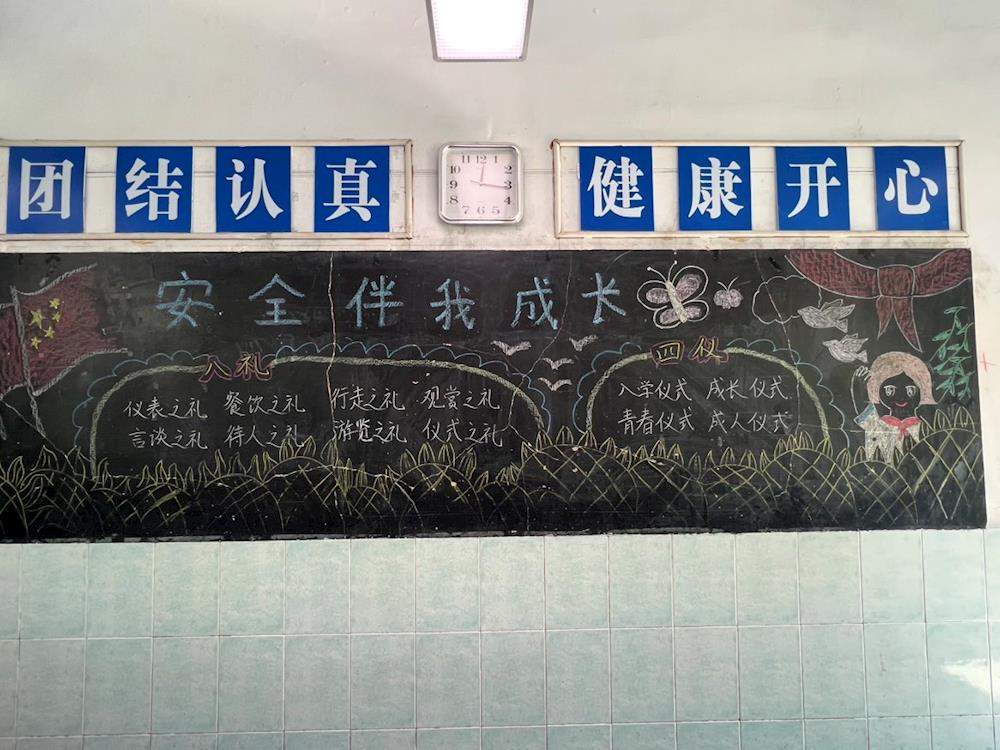 团结认真
健康开心
11 12 1
10 2
9 3
8 4
7 6 5
安全伴我成长
八礼
仪表之礼 餐饮之礼 行走之礼 观赏之礼
言谈之礼 待人之礼 游览之礼 仪式之礼
四仪
入学仪式 成长仪式
青春仪式 成人仪式